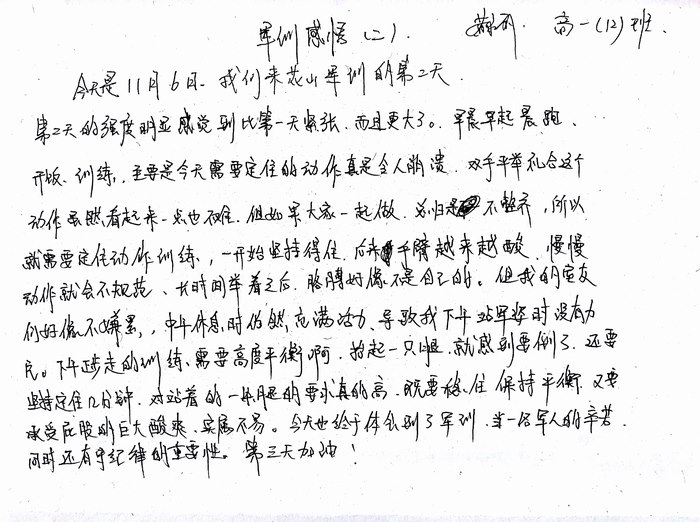 军训感悟(二). 高一(12)班.
今天是11月6日. 我们来花山军训的第二天.
第二天的强度明显感觉到比第一天紧张. 而且更大了。早晨早起晨跑、
开饭、训练, 主要是今天需要定住的动作真是令人崩溃. 双手平举礼合这个
动作虽然看起来一点也不难. 但如果大家一起做. 总归是不整齐, 所以
就需要定住动作训练, 一开始坚持得住. 后来手臂越来越酸. 慢慢
动作就会不规范、长时间举着之后. 胳膊好像不是自己的。但我的室友
们好像不嫌累,, 中午休息时仍然充满活力、导致我下午站军姿时没有力
气。下午踏步走的训练、需要高度平衡啊. 抬起一只腿, 就感到要倒了. 还要
坚持定住几分钟. 对站着的一条腿的要求真的高. 既要稳住保持平衡. 又要
承受屁股的巨大酸爽、实属不易。今天也终于体会到了军训. 当一名军人的辛苦.
同时还有守纪律的重要性。第三天加油!